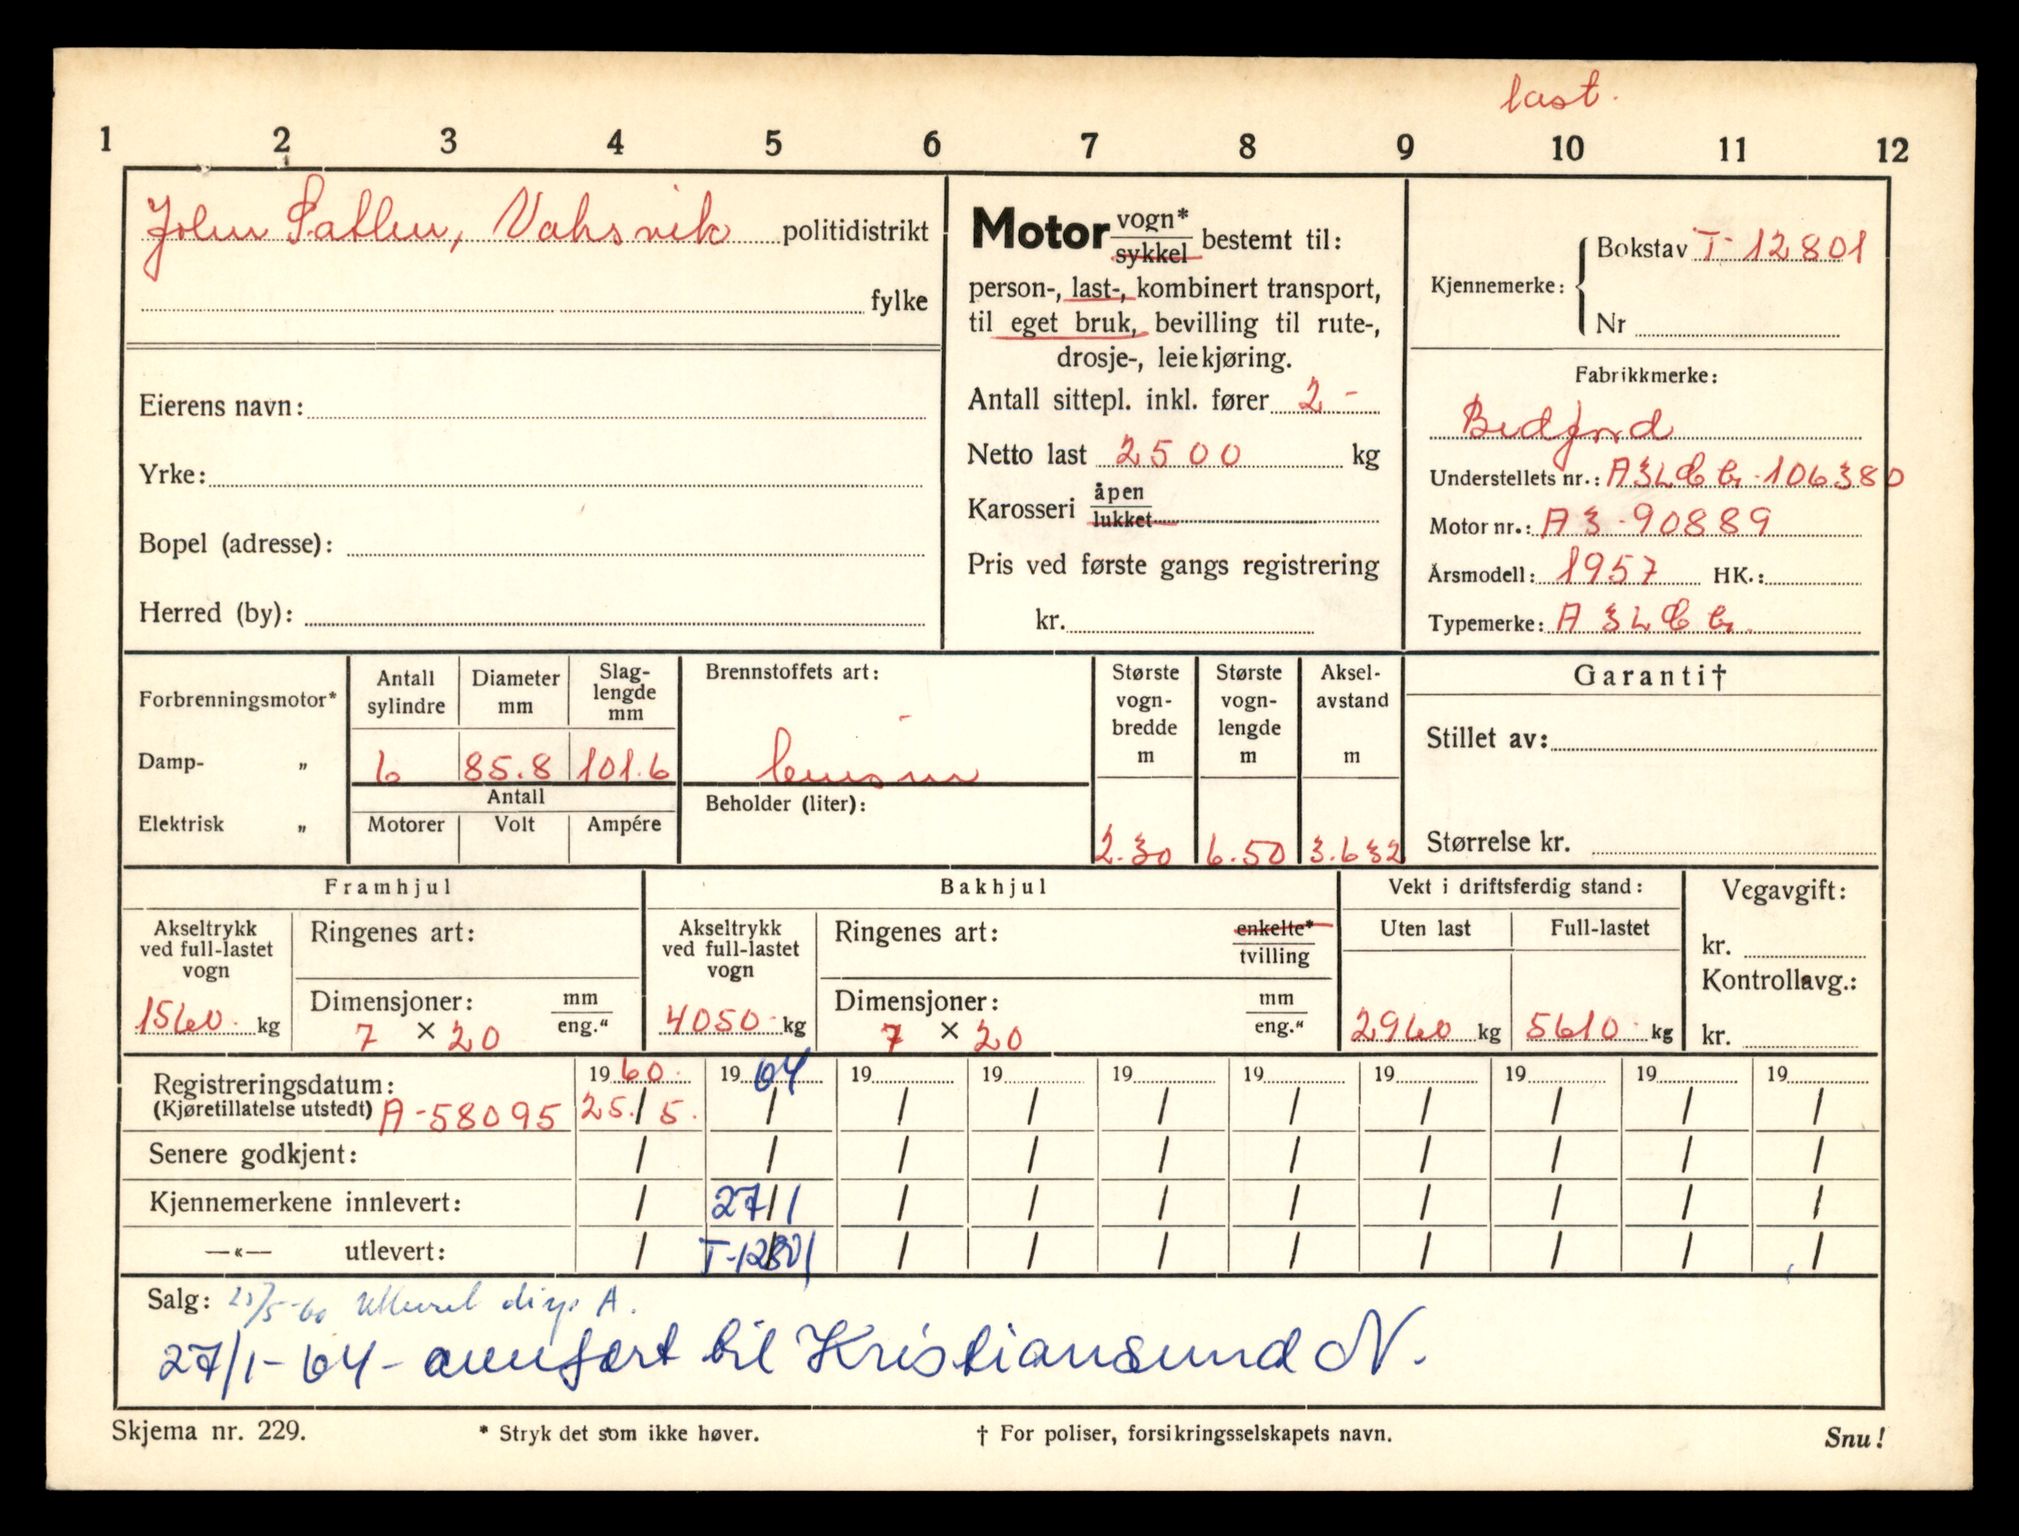 last.
1 2 3 4 5 6 7 8 9 10 11 12
John Sætren, Vaksvik politidistrikt
fylke
Eierens navn:
Yrke:
Bopel (adresse):
Herred (by):
Motor vogn* sykkel bestemt til:
person-, last-, kombinert transport,
til eget bruk, bevilling til rute-,
drosje-, leiekjøring.
Antall sittepl. inkl. fører 2 -
Netto last 2500 kg
Karosseri åpen lukket
Pris ved første gangs registrering
kr.
Kjennemerke: Bokstav T- 12801
Nr
Fabrikkmerke:
Bedford
Understellets nr.: 106380
Motor nr.: A3-90889
Årsmodell: 1957 HK.:
Typemerke:
Forbrenningsmotor*
Damp- „
Elektrisk „
Antall sylindre
6
Diameter mm
85.8
Slag-lengde mm
101.6
Antall
Motorer Volt Ampére
Brennstoffets art:
bensin
Beholder (liter):
Største vogn-bredde m
2.30
Største vogn-lengde m
6.50
Aksel-avstand m
3.632
Garanti†
Stillet av:
Størrelse kr.
Framhjul
Akseltrykk ved full-lastet vogn
1560 kg
Ringenes art:
Dimensjoner: mm eng.“
7 × 20
Bakhjul
Akseltrykk ved full-lastet vogn
4050 kg
Ringenes art: enkelte* tvilling
Dimensjoner: mm eng.“
7 × 20
Vekt i driftsferdig stand:
Uten last
2960 kg
Full-lastet
5610 kg
Vegavgift:
kr.
Kontrollavg.:
kr.
Registreringsdatum: 1960. 1964 19 19 19 19 19 19 19 19
(Kjøretillatelse utstedt) A-58095 25./5. / / / / / / / / /
Senere godkjent: / / / / / / / / / /
Kjennemerkene innlevert: / 27/1 / / / / / / / /
—«— utlevert: / T-12801 / / / / / / / /
Salg: 25/5-60 A.
27/1-64 - overført til Kristiansund N.
Skjema nr. 229.
* Stryk det som ikke høver.
† For poliser, forsikringsselskapets navn.
Snu!